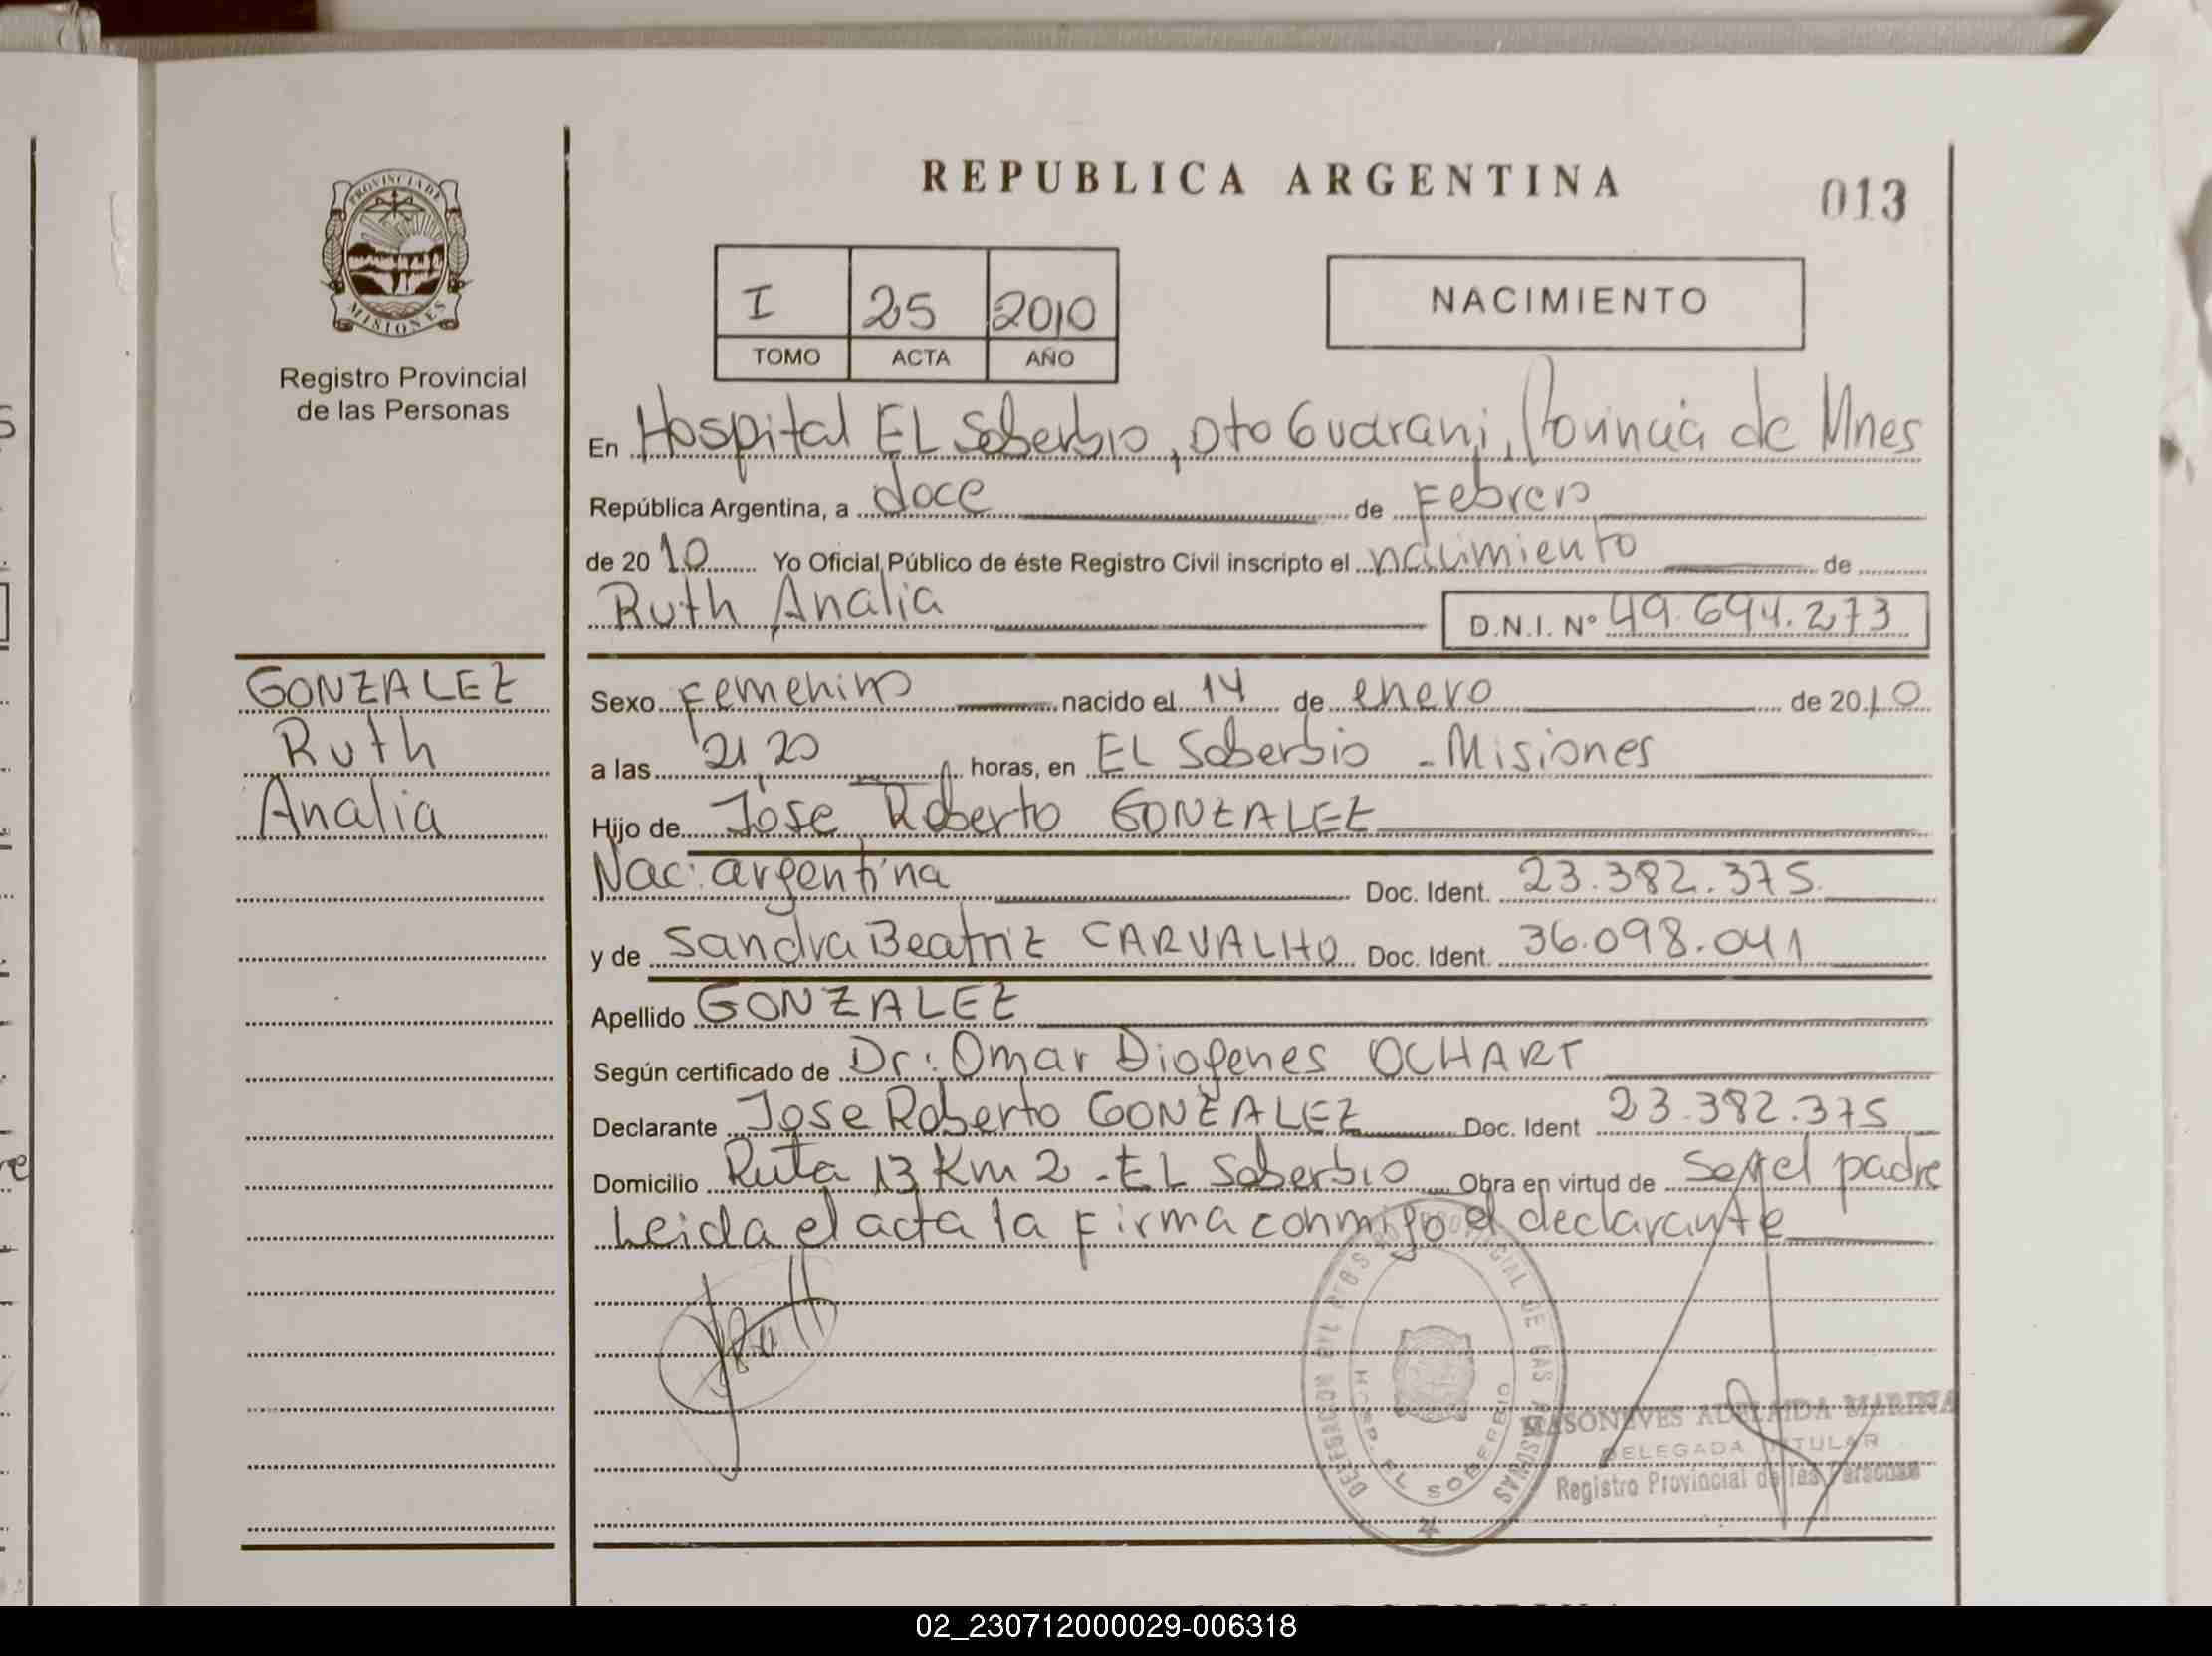 REPUBLICA ARGENTINA
013
PROVINCIA DE
MISIONES
Registro Provincial
de las Personas
I 25 2010
TOMO ACTA AÑO
NACIMIENTO
En Hospital EL Soberbio, Dto Guarani, Provincia de Mnes
República Argentina, a doce de Febrero
de 2010 Yo Oficial Público de éste Registro Civil inscripto el nacimiento de
Ruth Analia D.N.I. Nº 49.694.273
GONZALEZ
Ruth
Analia
Sexo Femenino nacido el 14 de enero de 2010
a las 21,20 horas, en EL Soberbio - Misiones
Hijo de Jose Roberto GONZALEZ
Nac: argentina Doc. Ident. 23.382.375.
y de Sandra Beatriz CARVALHO Doc. Ident. 36.098.041
Apellido GONZALEZ
Según certificado de Dr: Omar Diogenes OCHART
Declarante Jose Roberto GONZALEZ Doc. Ident 23.382.375
Domicilio Ruta 13 Km 2 - EL Soberbio Obra en virtud de ser el padre
Leida el acta la firma conmigo el declarante
HOSP. EL SOBERBIO
MASONEVES ADELAIDA MARINA
DELEGADA TITULAR
Registro Provincial de las Personas
02_230712000029-006318